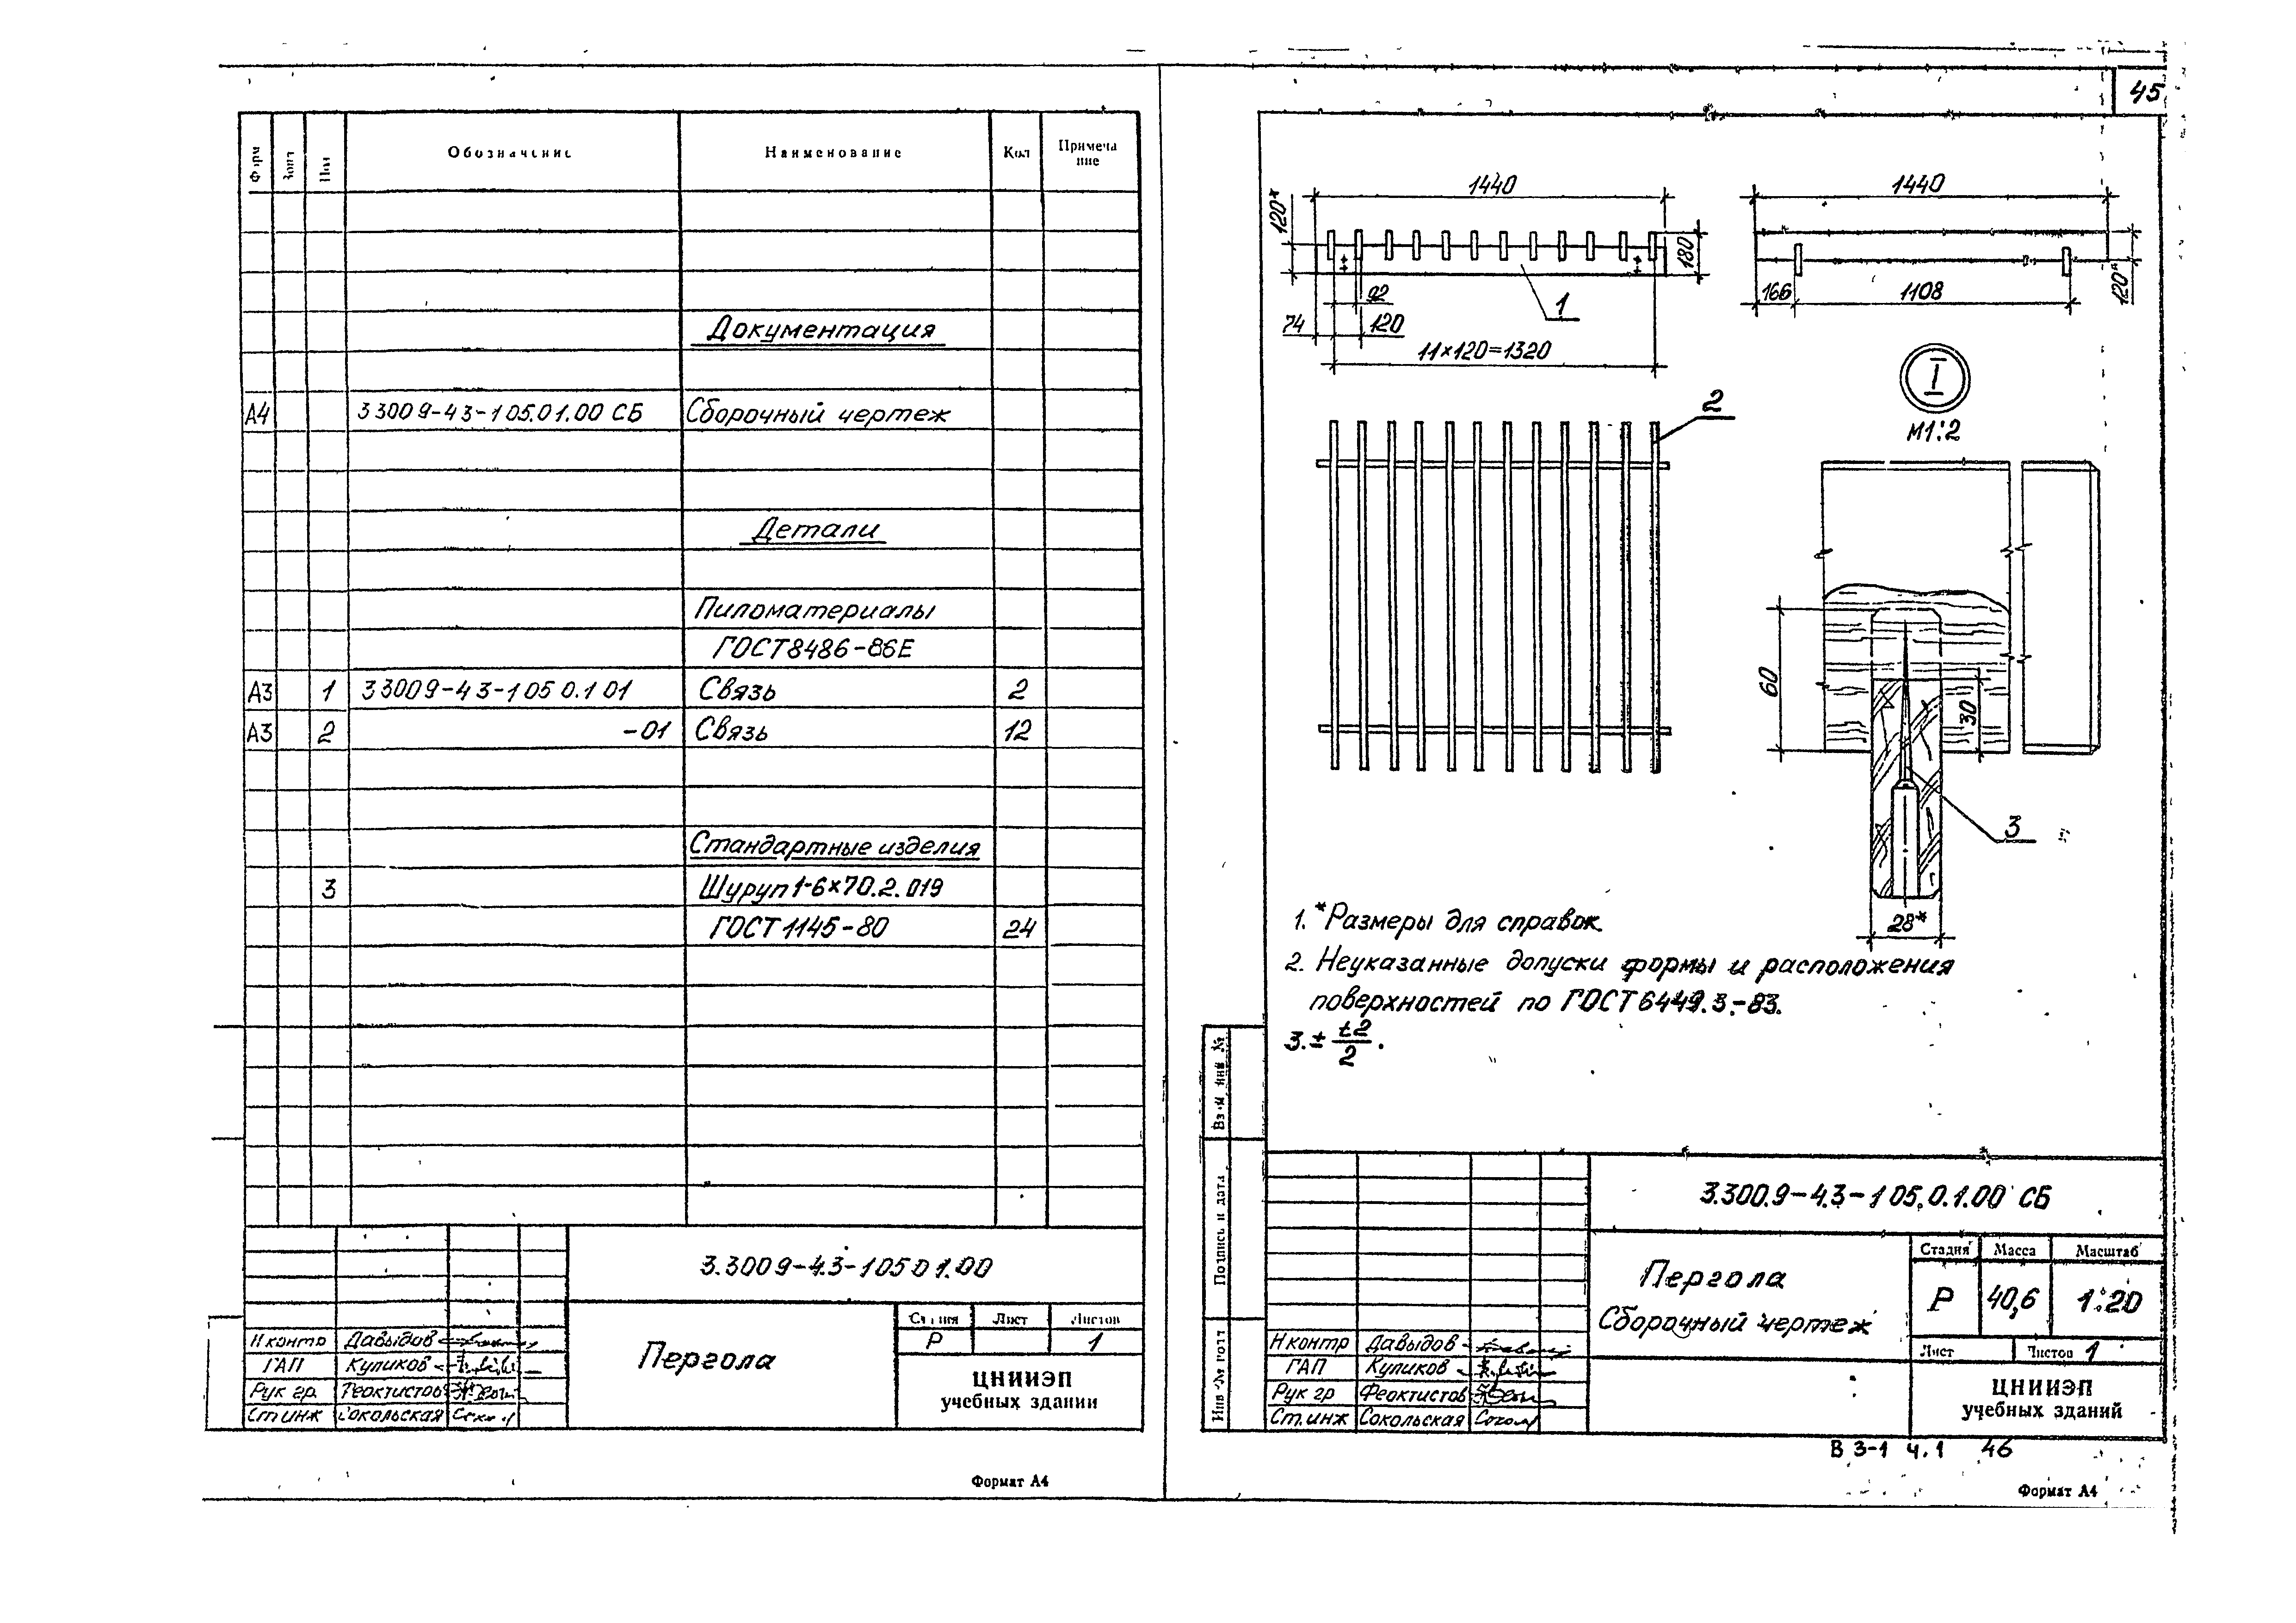 45
Форм Зона Поз Обозначение Наименование Кол Примеча
ние
Документация
А4 33009-43-105.01.00 СБ Сборочный чертеж
Детали
Пиломатериалы
ГОСТ8486-86Е
А3 1 33009-43-1050.101 Связь 2
А3 2 -01 Связь 12
Стандартные изделия
3 Шуруп1-6×70.2.019
ГОСТ1145-80 24
3.3009-4.3-10501.00
Пергола
Стадия Лист Листов
Р 1
Н контр Давыдов
ГАП Куликов
Рук гр. Феоктистов
Ст инж Сокольская
ЦНИИЭП
учебных зданий
Формат А4
1440
120*
180
92
1
74
120
11×120=1320
1440
166
1108
120*
I
М1:2
2
60
30
3
28*
1.*Размеры для справок.
2. Неуказанные допуски формы и расположения
поверхностей по ГОСТ6449.3-83.
3.± t2/2.
Взам инв №
Подпись и дата
Инв № подл
3.300.9-4.3-105.0.1.00 СБ
Пергола
Сборочный чертеж
Стадия Масса Масштаб
Р 40,6 1:20
Лист Листов 1
Н контр Давыдов
ГАП Куликов
Рук гр Феоктистов
Ст.инж Сокольская
ЦНИИЭП
учебных зданий
В 3-1 ч.1 46
Формат А4